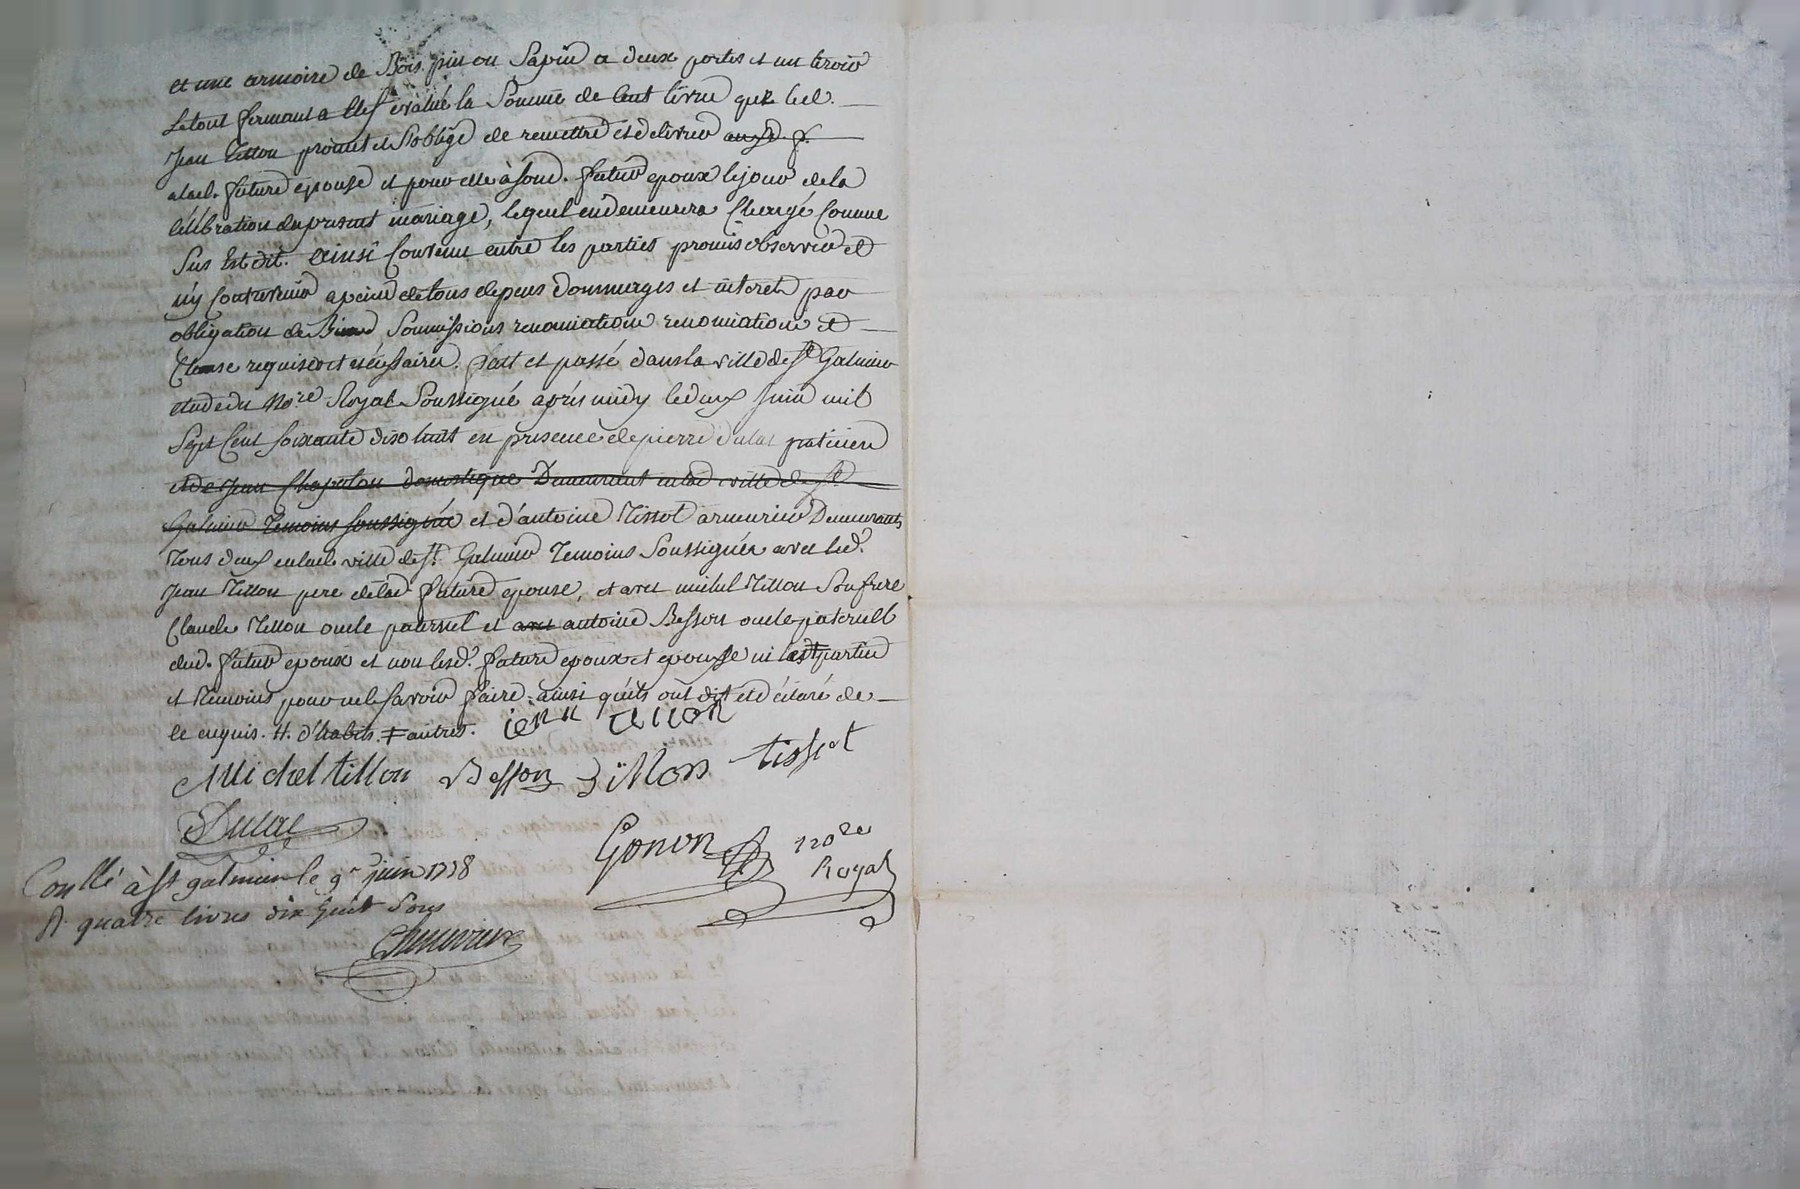 et une armoire de Bois pin ou Sapin a deux portes et un tiroir
Letout fermant a Clef évalué la Somme de Cent livres que led.
Jean Tillon promet et S'oblige de remettre et delivrer aud. f.
alad. future épouse et pour elle à Sond. futur epoux lejour dela
Célébration du présent mariage, lequel en demeurera Chargé Comme
Sus Est dit. ainsi Convenu entre les parties promis observer et
n'y Contrevenir a peine de tous depens dommages et interets par
obligation de Biens, Soumissions renonciations renonciations et
Clause requises et nécessaires. fait et passé dans la ville de St Galmier
etude du No.re Royal Soussigné après midy le deux juin mil
Sept Cent Soixante dix huit en presence de pierre dulac praticien
et de Jean Chapolon domestique Demeurant en lad ville de St
Galmier Temoins Soussignés et d'antoine Tissot armurier Demeurants
Tous deux en lad. ville de St Galmier Temoins Soussignés avec led.
Jean Tillon pere delad. future epouse, et avec michel Tillon Son frere
Claude Tillon oncle paternel et avec antoine Besson oncle paternel
dud. futur epoux et non lesd. future epoux et epouse ni les partie
et Témoins, pour ne le Savoir faire, ainsi qu'ils ont dit et déclaré de
ce enquis. H. d'habits. ‡ autres. jean tillon
Michel tillon Besson tillon tissot
Dulac
Gonon no.re Royal
Conllé à St galmier le 9e juin 1778
R. quatre livres dix huit Sous